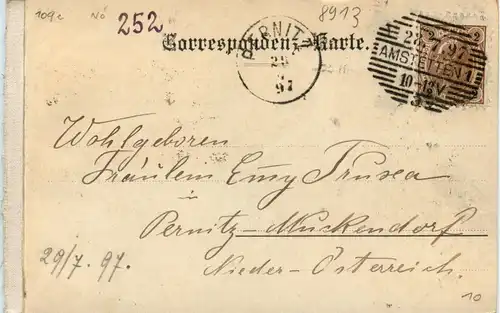 109e No 252 8913
Correspondenz-Karte.
PERNITZ
29
7
97
2
28 7 97
AMSTETTEN 1
10-12 V
Wohlgeboren
Fräulein Emy Trusea
in
Pernitz-Muckendorf
29/7. 97. Nieder-Österreich.
10